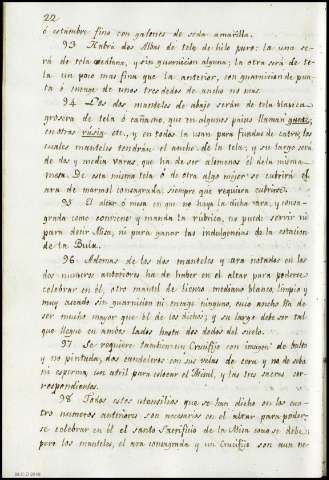 22
ó estambre fino con galones de seda amarilla.
93 Habrá dos Albas de tela de hilo puro: la una se-
rá de tela mediana, y sin guarnicion alguna; la otra será de te-
la un poco mas fina que la anterior, con guarnicion de pun-
ta ó encage de unos tres dedos de ancho no mas.
94. Los dos manteles de abajo serán de tela blanca
grosera de tela ó cañamo, que en algunos países llaman
en otros rusia etc., y en todos la usan para fundas de catres; los
cuales manteles tendrán el ancho de la tela; y su largo será
de dos y media varas, que ha de ser alomenos el dela misma
mesa. De esta misma tela ó de otra algo mejor se cubrirá el
ara de marmol consagrada, siempre que requiera cubrirse.
95 El altar ó mesa en que no haya la dicha vara, y consa-
grada como conviene y manda la rúbrica, no puede servir ni
para decir Misa, ni para ganar las indulgencias de la estacion
de la Bula.
96. Ademas de los dos manteles y ara notados en los
dos numeros anteriores ha de haber en el altar para poderse
celebrar en él, otro mantel de lienzo mediano blanco, limpio y
muy aseado sin guarnicion ni encage ninguno, cuio ancho ha de
ser mucho mayor que el de los dichos; y su largo debe ser tal
que llegue en ambos lados hasta dos dedos del suelo.
97. Se requiere tambien un Crucifijo con imagen de bulto
y no pintada, dos candeleros con sus velas de cera y no de sebo
ni esperma, un atril para colocar el Misal, y las tres sacras cor-
respondientes.
98 Todos estos utensilios que se han dicho en los cua-
tro numeros anteriores son necesarios en el altar para poder-
se celebrar en él el santo Sacrificio de la Misa como se debe:
pero los manteles, el ara consagrada y un Crucifijo son aun ne-